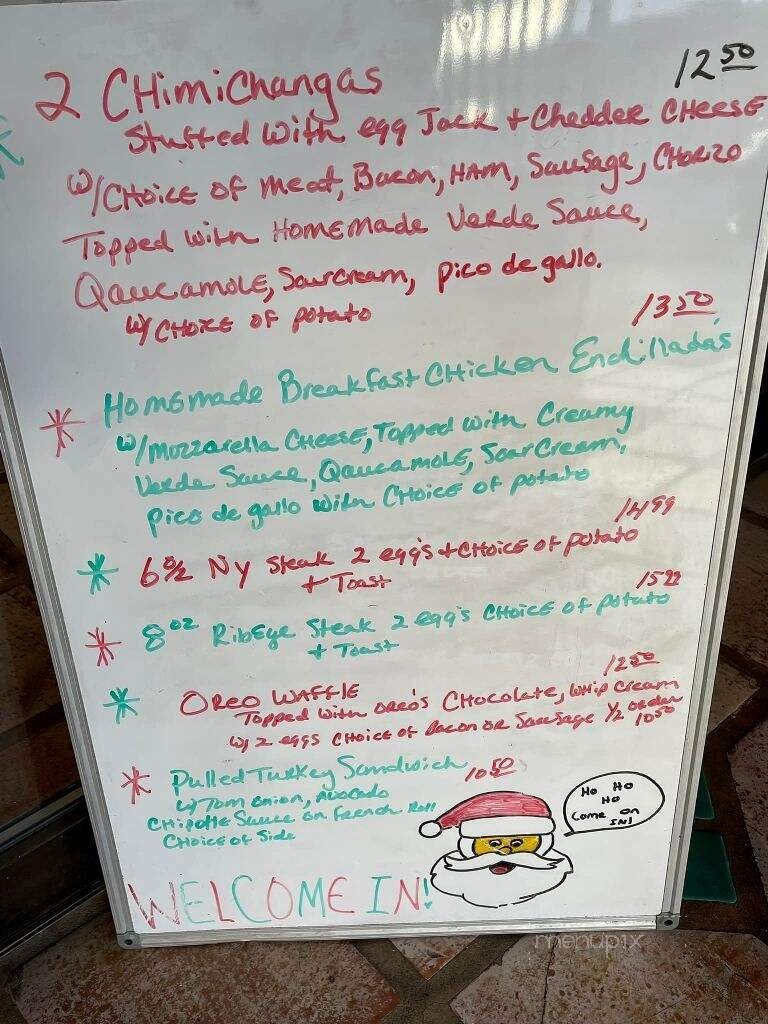 2 CHimiChangas 12 50
Stuffed with egg Jack + Chedder CHEESE
w/CHOICE of meat, Bacon, HAM, Sausage, CHORIZO
Topped with HomEmade Verde Sauce,
Qaucamole, Sourcream, pico de gallo.
w/ CHOICE of potato
13 50
* Homemade Breakfast CHicken Enchillada's
w/mozzarella CHEESE, Topped with Creamy
Verde Sauce, Qaucamole, Sour Cream,
pico de gallo with CHOICE of potato
14 99
* 6 oz Ny Steak 2 egg's + CHOICE of potato
+ Toast
15 99
* 8 oz RibEye Steak 2 egg's CHOICE of potato
+ Toast
* OREO WAFFLE 12 50
Topped with oreo's CHocolate, whip Cream
w/ 2 eggs CHOICE of Bacon or Sausage 1/2 order
10 50
* Pulled Turkey Sandwich 10 50
w/Tom onion, Avocado
CHipotle Sauce on French Roll
CHOICE of Side
Ho Ho
Ho
Come on
IN!
WELCOME IN!
menupix